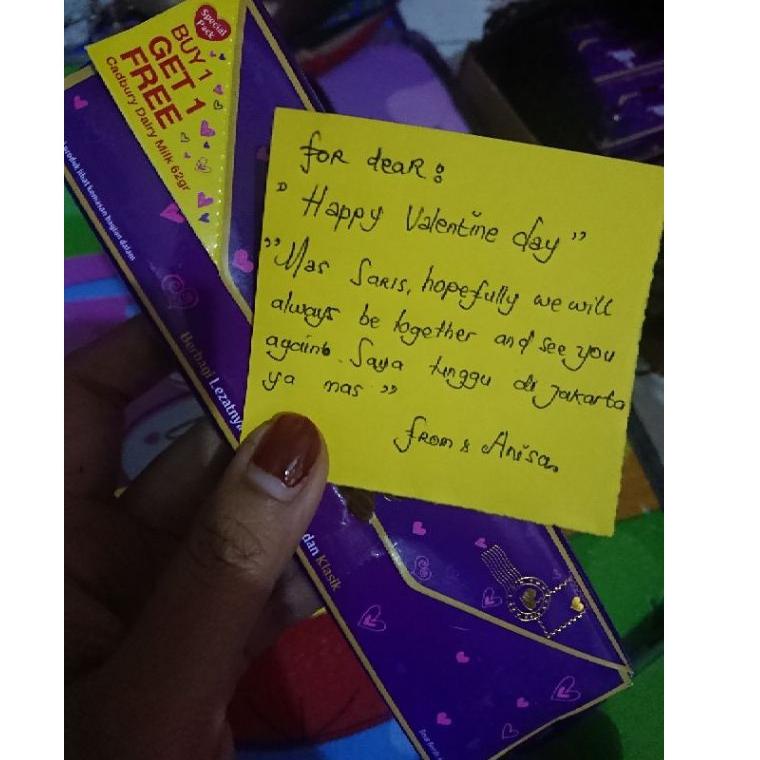 Special
Pack
BUY 1
GET 1
FREE
Cadbury Dairy Milk 62gr
produk lihat kemasan bagian dalam
for dear :
" Happy Valentine day "
"Mas Saris, hopefully we will
always be together and see you
again. Saya tunggu di Jakarta
ya mas "
from : Anisa
Berbagi Lezatnya
dan Klasik